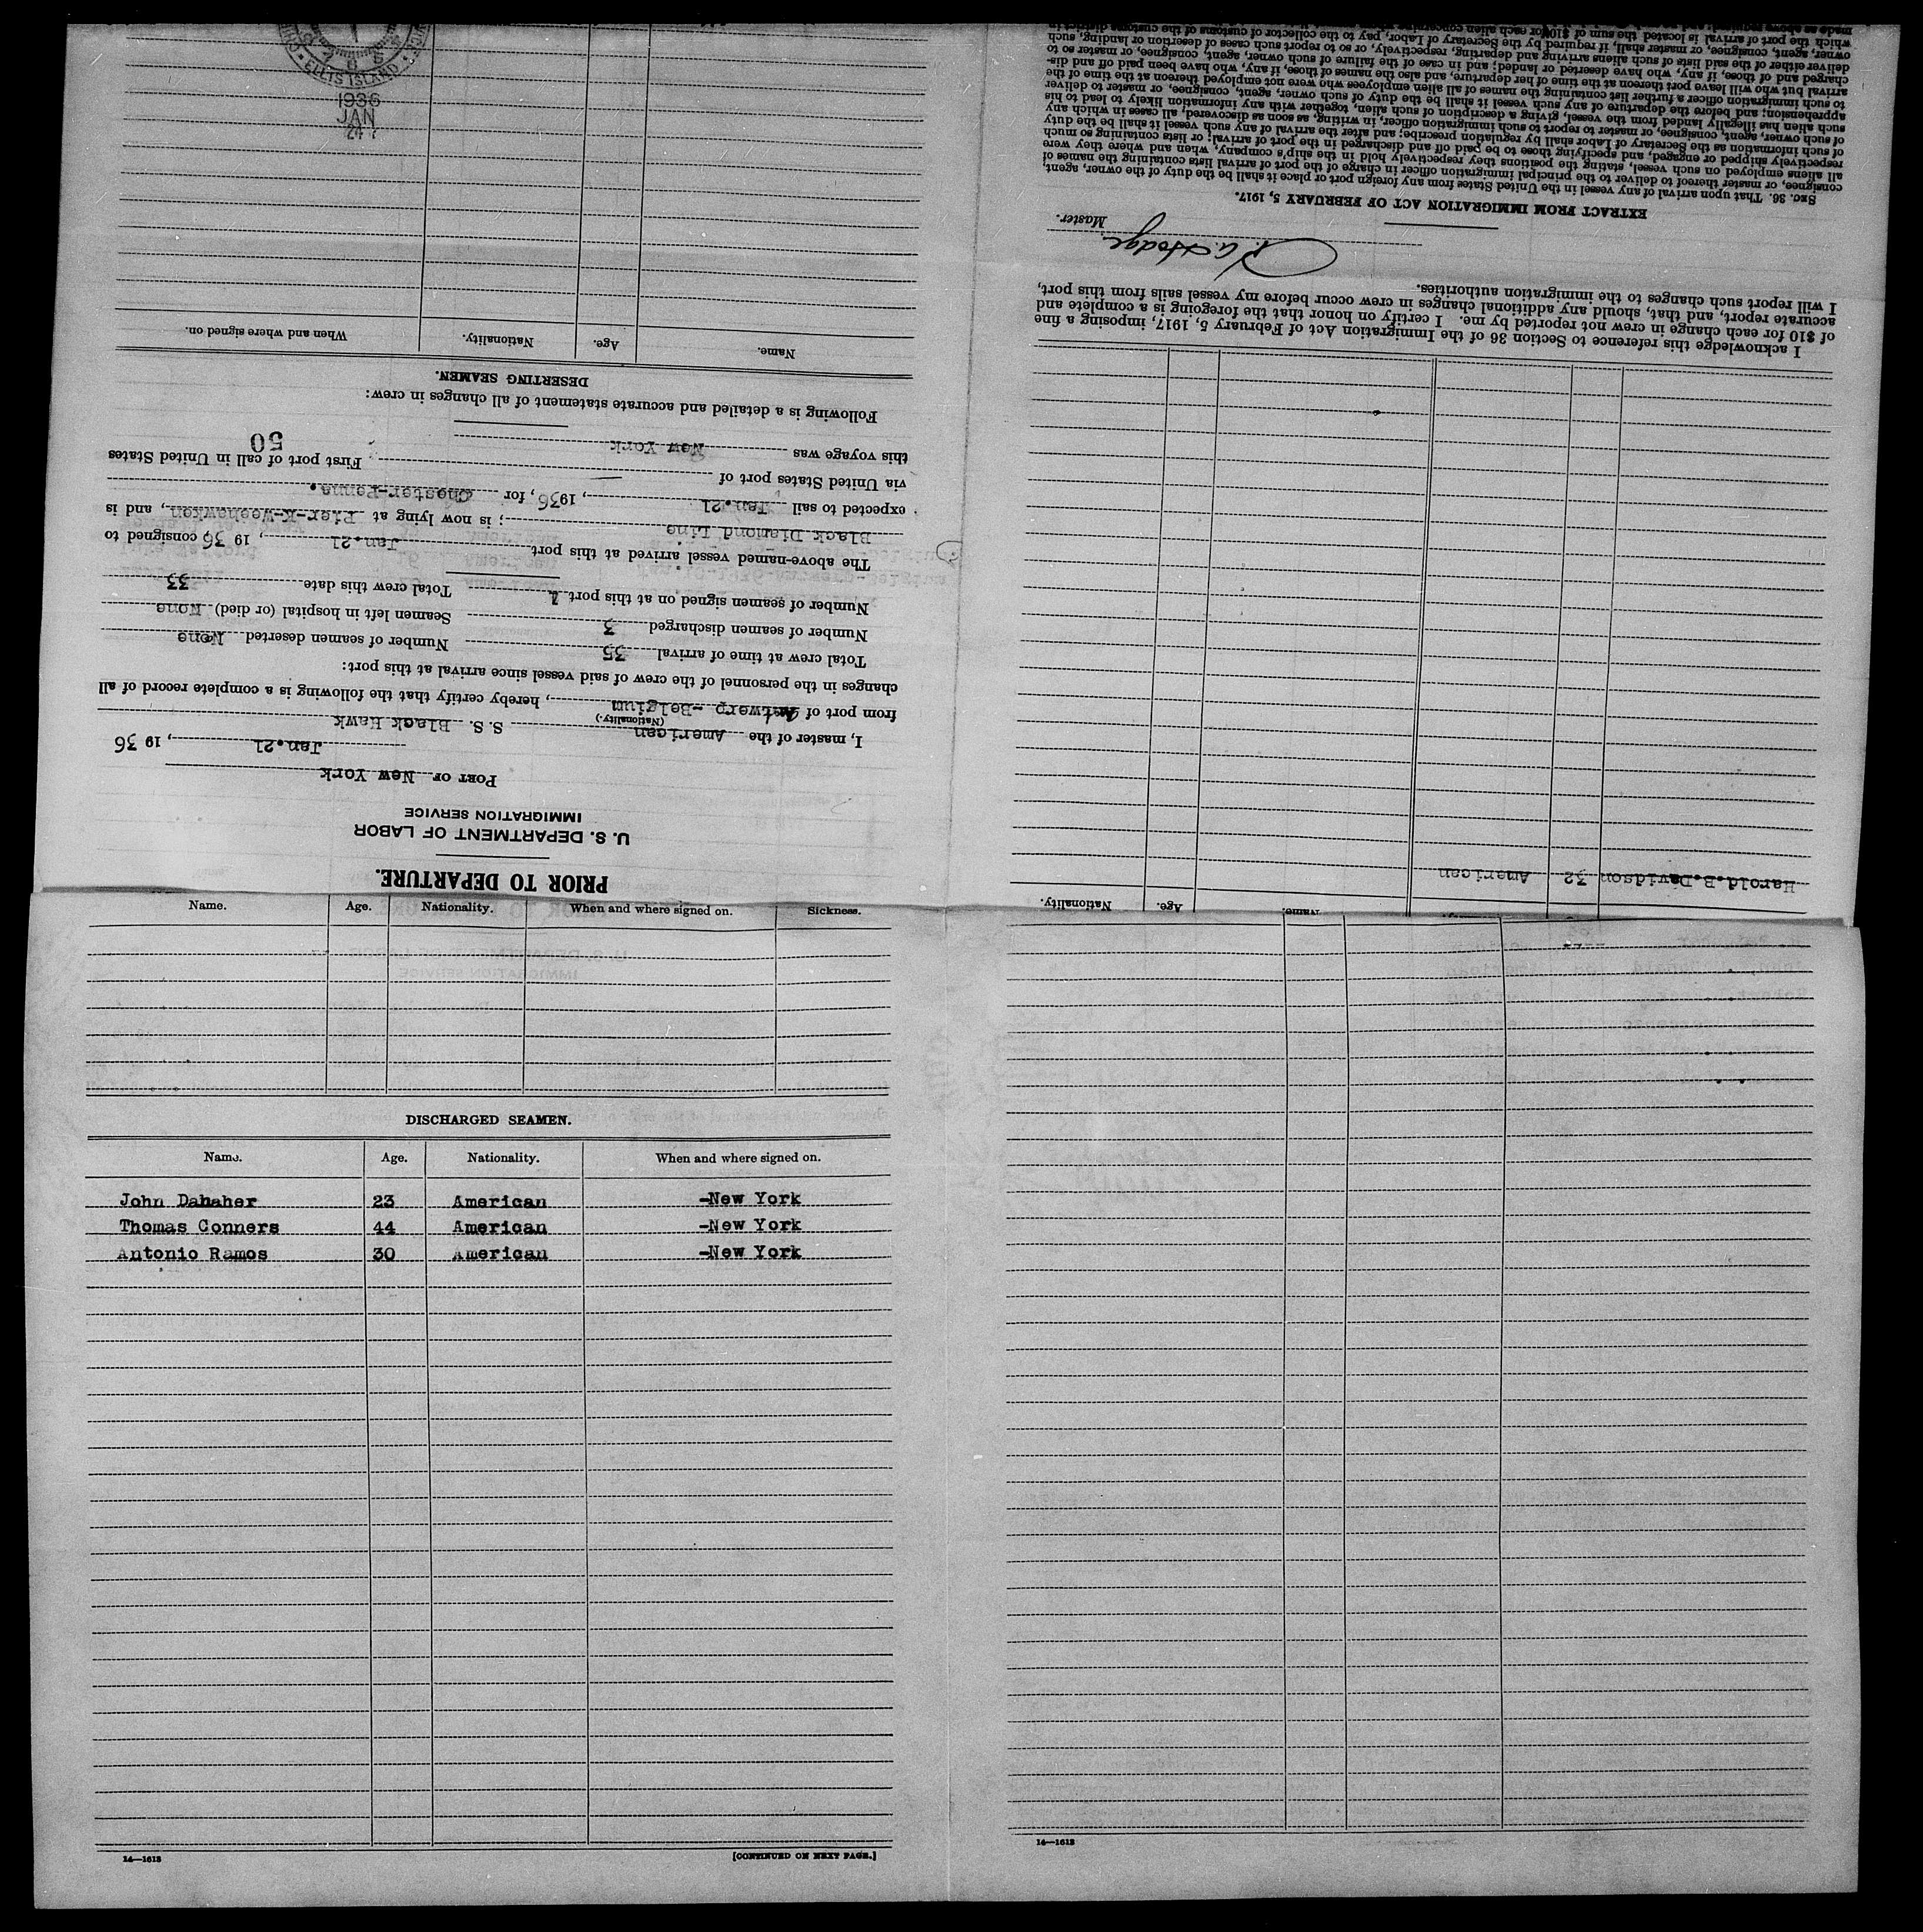 PRIOR TO DEPARTURE.
U. S. DEPARTMENT OF LABOR
IMMIGRATION SERVICE
PORT OF New York
Jan.21, 1936
I, master of the American S. S. Black Hawk
(Nationality.)
from port of Antwerp -Belgium, hereby certify that the following is a complete record of all
changes in the personnel of the crew of said vessel since arrival at this port:
Total crew at time of arrival 35 Number of seamen deserted None
Number of seamen discharged 3 Seamen left in hospital (or died) None
Number of seamen signed on at this port 1 Total crew this date 33
The above-named vessel arrived at this port Jan.21, 1936 consigned to
Black Diamond Line; is now lying at Pier-K-Weehawken, and is
expected to sail Jan.21, 1936, for Chester-Penna.
via United States port of First port of call in United States
this voyage was New York
50
Following is a detailed and accurate statement of all changes in crew:
DESERTING SEAMEN.
Name. Age. Nationality. When and where signed on.
ELLIS ISLAND
1936
JAN
24
Name. Age. Nationality.
Harold.B.Davidson 32 American
I acknowledge this reference to Section 36 of the Immigration Act of February 5, 1917, imposing a fine
of $10 for each change in crew not reported by me. I certify on honor that the foregoing is a complete and
accurate report, and that, should any additional changes in crew occur before my vessel sails from this port,
I will report such changes to the immigration authorities.
Hodge
Master.
EXTRACT FROM IMMIGRATION ACT OF FEBRUARY 5, 1917.
SEC. 36. That upon arrival of any vessel in the United States from any foreign port or place it shall be the duty of the owner, agent,
consignee, or master thereof to deliver to the principal immigration officer in charge of the port of arrival lists containing the names of
all aliens employed on such vessel, stating the positions they respectively hold in the ship's company, when and where they were
respectively shipped or engaged, and specifying those to be paid off and discharged in the port of arrival; or lists containing so much
of such information as the Secretary of Labor shall by regulation prescribe; and after the arrival of any such vessel it shall be the duty
of such owner, agent, consignee, or master to report to such immigration officer, in writing, as soon as discovered, all cases in which any
such alien has illegally landed from the vessel, giving a description of such alien, together with any information likely to lead to his
apprehension; and before the departure of any such vessel it shall be the duty of such owner, agent, consignee, or master to deliver
to such immigration officer a further list containing the names of all alien employees who were not employed thereon at the time of the
arrival but who will leave port thereon at the time of her departure, and also the names of those, if any, who have been paid off and dis-
charged and of those, if any, who have deserted or landed; and in case of the failure of such owner, agent, consignee, or master so to
deliver either of the said lists of such aliens arriving and departing, respectively, or so to report such cases of desertion or landing, such
owner, agent, consignee, or master shall, if required by the Secretary of Labor, pay to the collector of customs of the customs district in
which the port of arrival is located the sum of $10 for each alien concerning whom
Name. Age. Nationality. When and where signed on. Sickness.
DISCHARGED SEAMEN.
Name. Age. Nationality. When and where signed on.
John Danaher 23 American -New York
Thomas Conners 44 American -New York
Antonio Ramos 30 American -New York
14—1613 [CONTINUED ON NEXT PAGE.]
14—1613